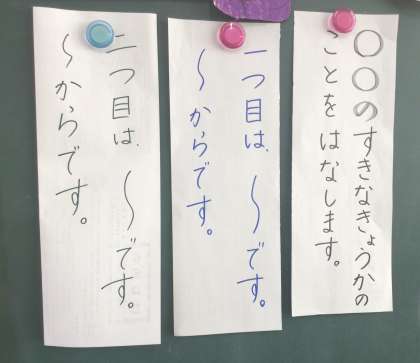 ○○のすきなきょうかの
ことをはなします。
一つ目は、〜です。
〜からです。
二つ目は、〜です。
〜からです。